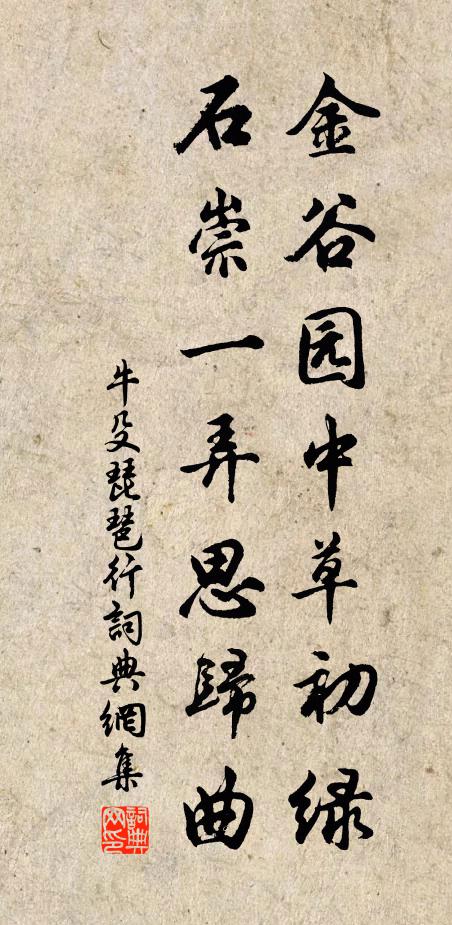 金谷园中草初绿
石崇一弄思歸曲
牛殳琵琶行詞典網集
詞典网印